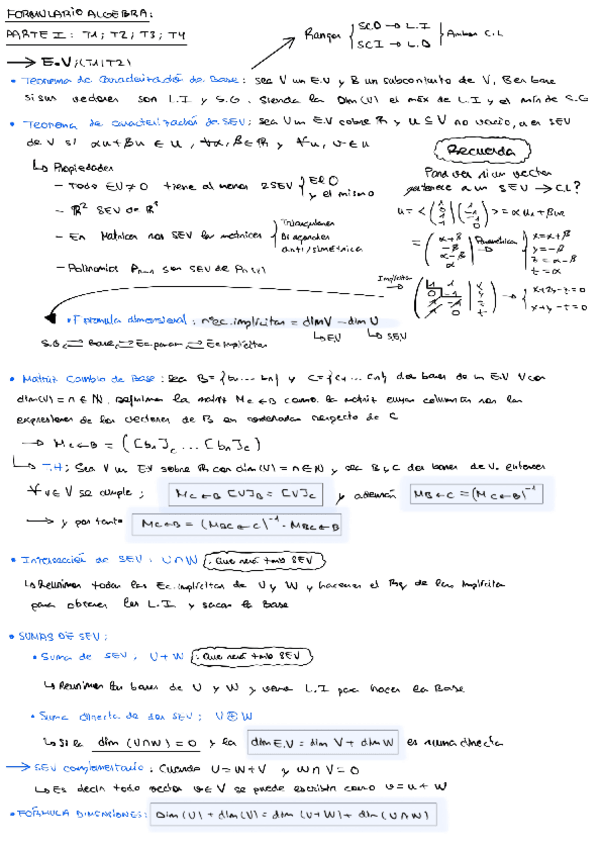 FORMULARIO ALGEBRA:
PARTE I: T1; T2; T3; T4
Rangos { SCD → L.I
SCI → L.D } Ambos C.L
→ E.V; (T1; T2)
• Teorema de Caracterización de Base: sea V un E.V y B un subconjunto de V, B en base
si sus vectores son L.I y S.G. Siendo la Dim(V) el máx de L.I y el mín de S.G
• Teorema de caracterización de SEV: sea V un E.V sobre ℝ y U ⊆ V no vacío, U es SEV
de V si αu + βv ∈ U, ∀α, β ∈ ℝ y ∀u, v ∈ U
Recuerda
↳ Propiedades
– Todo EV ≠ 0 tiene al menos 2 SEV { El 0
y el mismo
– En Matrices nos SEV las matrices { Triangulares
Diagonales
anti/simétrica
– Polinomios Pₙ₋₁ son SEV de
Para ver si un vector
pertenece a un SEV → C.L?
U = < (1 0 1 1) (1 -1 -1 0) > = αu₁ + βu₂
= (α+β -β α-β α) Paramétricas → { x = α+β
y = -β
z = α-β
t = α
Implícitas
→ { x+2y-z=0
x+y-t=0
• Fórmula dimensional: nº ec. implícitas = dim V – dim U
↳ E.V ↳ S.E.V
S.G ⇄ Base ⇄ Ec param ⇄ Ec Implícitas
• Matriz Cambio de Base: sea B = {b₁ ... bₙ} y C = {c₁ ... cₙ} dos bases de un E.V V con
dim(V) = n ∈ ℕ. Definimos la matriz M_C←B como la matriz cuyas columnas son las
expresiones de los vectores de B en coordenadas respecto de C
→ M_C←B = ([bₙ]_C ... [bₙ]_C)
↳ TH: Sea V un EV sobre ℝ con dim(V) = n ∈ ℕ y sea B y C dos bases de V. entonces
∀v ∈ V se cumple: M_C←B [V]_B = [V]_C y además M_B←C = (M_C←B)⁻¹
→ y por tanto M_C←B = (M_BC←C)⁻¹ · M_BC←B
• Intersección de SEV: U∩W (. Que será tmb SEV)
↳ Reunimos todas las Ec. implícitas de U y W y hacemos el Rg de las Implícitas
para obtener las L.I y sacar la Base
• SUMAS DE SEV:
• Suma de SEV, U+W (. Que será tmb SEV)
↳ Reunimos las bases de U y W y vemos L.I para hacer la Base
• Suma directa de dos SEV; U⊕W
↳ Si la dim (U∩W) = 0 y la dim E.V = dim V + dim W es suma directa
→ SEV complementario: Cuando U = W+V y W∩V = 0
↳ Es decir todo vector v ∈ V se puede escribir como v = u + w
• FÓRMULA DIMENSIONES: Dim (U) + dim (V) = dim (U+W) + dim (U∩W)